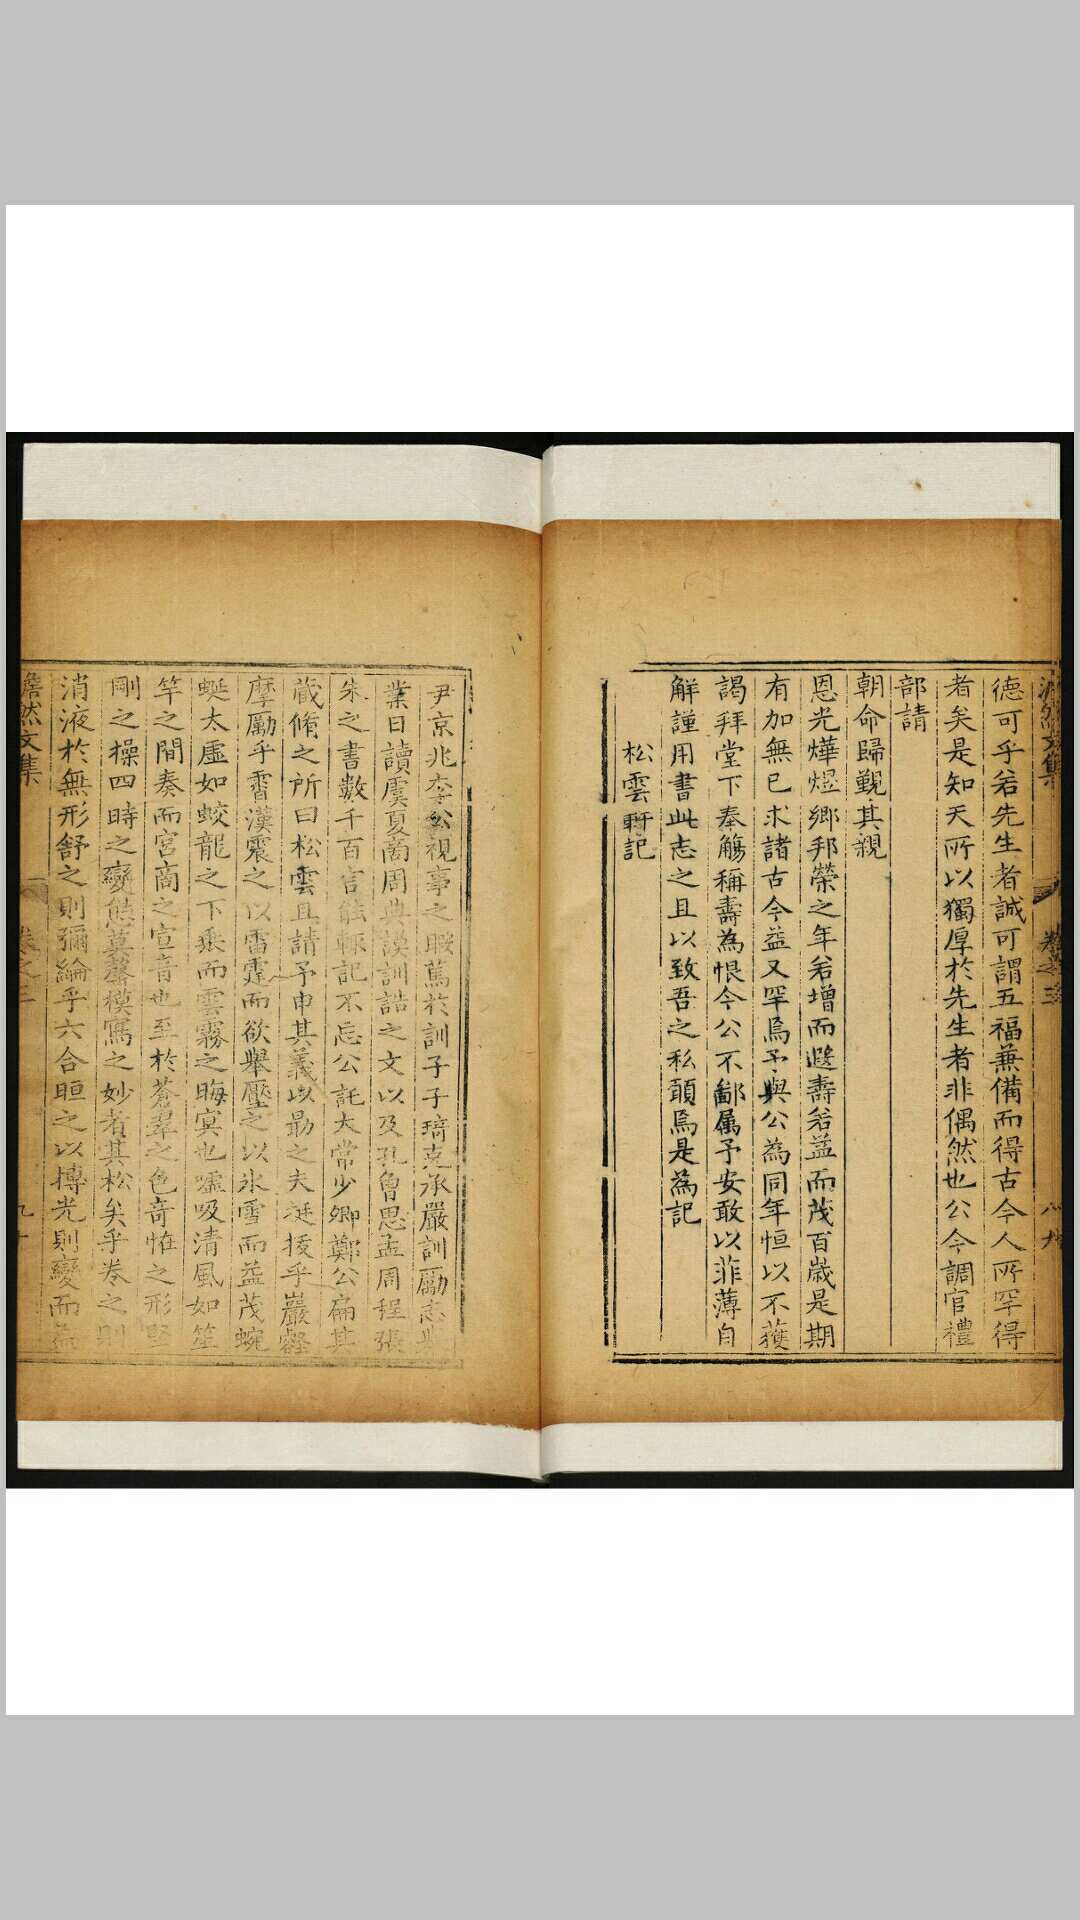 德可乎若先生者誠可謂五福兼備而得古今人所罕得
者矣是知天所以獨厚於先生者非偶然也公今調官禮
部請
朝命歸覲其親
恩光燁煜鄉邦榮之年若增而遐壽若益而茂百歲是期
有加無已求諸古今益又罕焉予與公為同年恒以不獲
謁拜堂下奉觴稱壽為恨今公不鄙属予安敢以菲薄自
解謹用書此志之且以致吾之私頋焉是為記
松雲軒記
尹京兆李公視事之暇篤於訓子子琦克承嚴訓勵志
業日讀虞夏商周典謨訓誥之文以及孔曾思孟周程張
朱之書數千百言能輒記不忘公託太常少卿鄭公扁其
藏脩之所曰松雲且請予申其義以勗之夫挺拔乎巖壑
摩厲乎霄漢震之以雷霆而欲舉壓之以氷雪而益茂蜿
蜒太虛如蛟龍之下乘而雲霧之晦冥也噓吸清風如笙
竽之間奏而宮商之宣音也至於蒼翠之色竒恠之形堅
剛之操四時之變態莫罄模寫之妙者其松矣乎卷之則
消液於無形舒之則彌綸乎六合晅之以摶光則變而益
澹然文集 卷之三